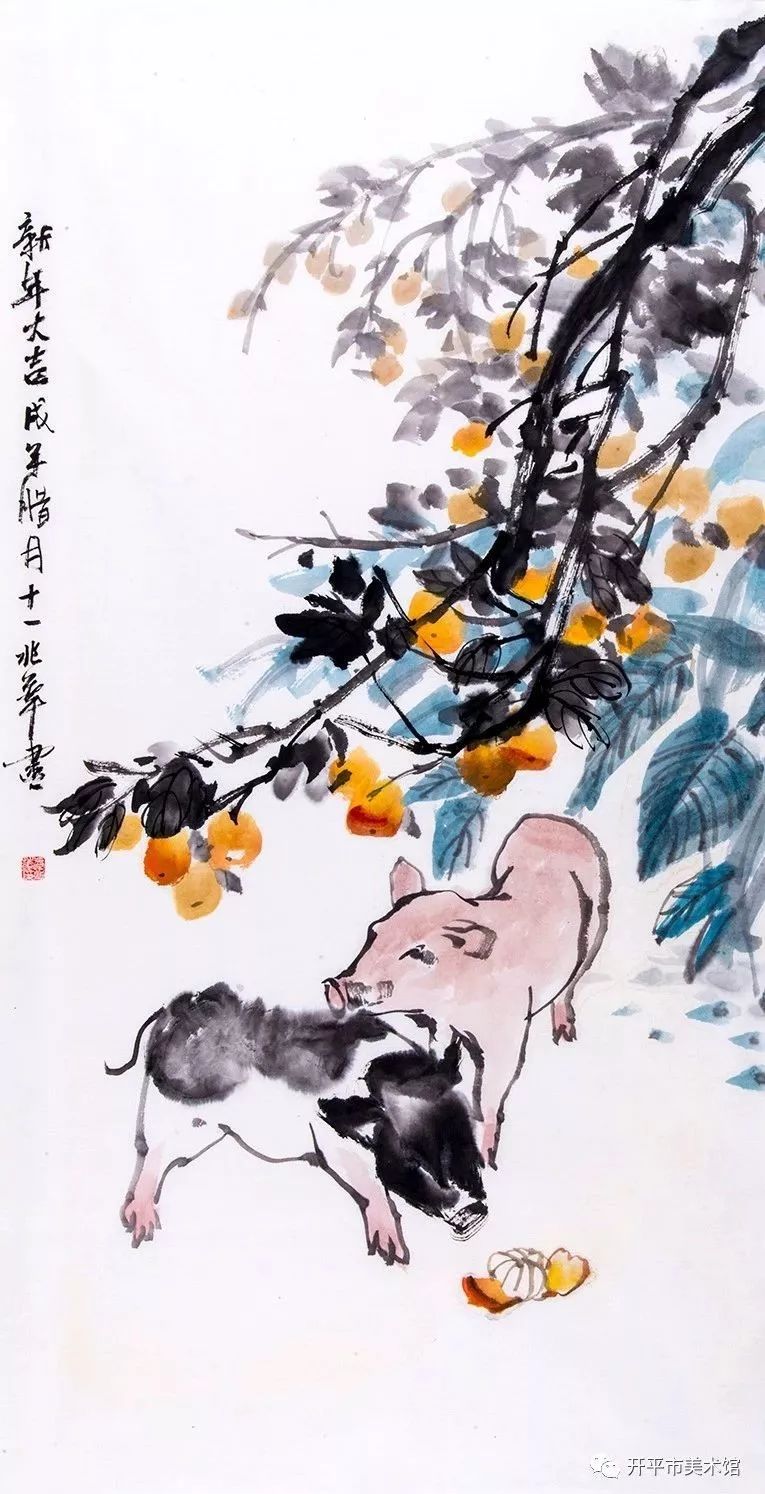 新年大吉戌年腊月十一兆华画
开平市美术馆